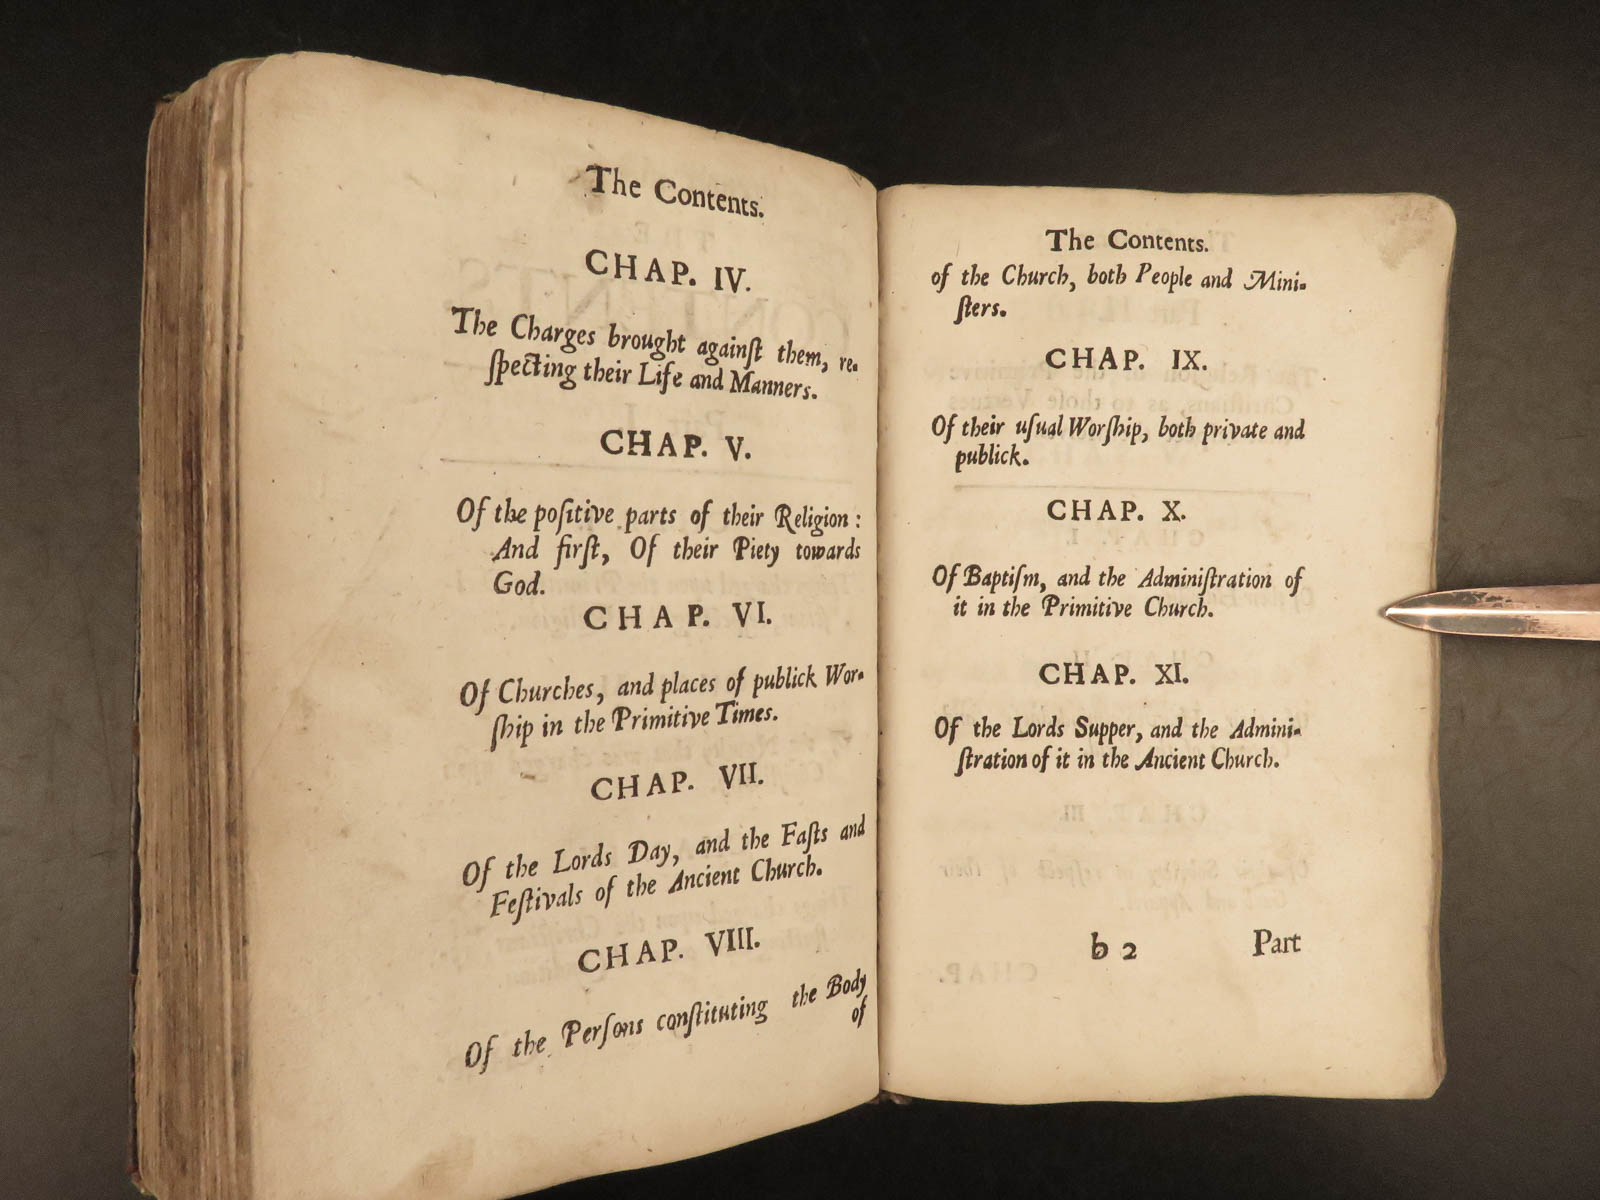 The Contents.
CHAP. IV.
The Charges brought againſt them, re-
ſpecting their Life and Manners.
CHAP. V.
Of the poſitive parts of their Religion :
And firſt, Of their Piety towards
God.
CHAP. VI.
Of Churches, and places of publick Wor-
ſhip in the Primitive Times.
CHAP. VII.
Of the Lords Day, and the Faſts and
Feſtivals of the Ancient Church.
CHAP. VIII.
Of the Perſons conſtituting the Body
of
The Contents.
of the Church, both People and Mini-
ſters.
CHAP. IX.
Of their uſual Worſhip, both private and
publick.
CHAP. X.
Of Baptiſm, and the Adminiſtration of
it in the Primitive Church.
CHAP. XI.
Of the Lords Supper, and the Admini-
ſtration of it in the Ancient Church.
b 2 Part